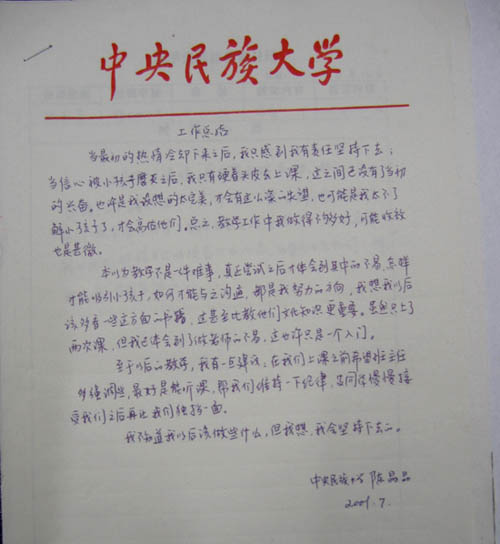 中央民族大学
工作总结
当最初的热情冷却下来之后，我只感到我有责任坚持下去；
当信心被小孩子磨灭之后，我只有硬着头皮去上课，这之间已没有了当初
的兴奋。也许是我设想的太完美，才会有这么深的失望，也可能是我太不了
解小孩子了，才会高估他们。总之，教学工作中我做得不够好，可能收获
也是甚微。
本以为教学不是一件难事，真正尝试之后才体会到其中的不易，怎样
才能吸引小孩子，如何才能与之沟通，都是我努力的方向，我想我以后
该多看一些这方面的书籍，这甚至比教他们文化知识更重要。虽然只上了
两次课，但我已体会到了做老师的不易，这也许只是一个入门。
至于以后的教学，我有一点建议：在我们上课之前希望班主任
多强调些，最好是能听课，帮我们维持一下纪律，等同学慢慢接
受我们之后再让我们独挡一面。
我不知道我以后该做些什么，但我想，我会坚持下去的。
中央民族大学 陈晶晶
7.